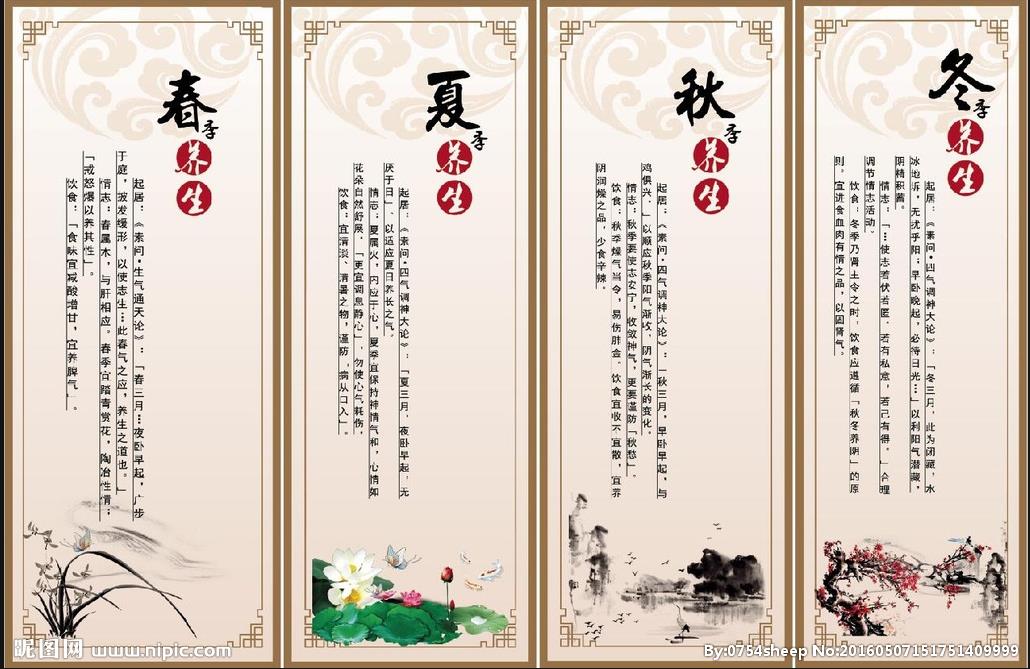 春季养生
起居：《素问·生气通天论》：「春三月…夜卧早起，广步
于庭，披发缓形，以使志生…此春气之应，养生之道也。」
情志：春属木，与肝相应。春季宜踏青赏花，陶冶性情；
「戒怒爆以养其性」。
饮食：「食味宜减酸增甘，宜养脾气」。
夏季养生
起居：《素问·四气调神大论》：「夏三月，夜卧早起，无
厌于日」、以适应夏日养长之气。
情志：夏属火，内应于心，夏季宜保持神情气和，心情如
花朵自然舒展，「更宜调息静心」，勿使心气耗伤，
饮食：宜清淡、清暑之物，谨防「病从口入」。
秋季养生
起居：《素问·四气调神大论》：「秋三月，早卧早起，与
鸡俱兴，」以顺应秋季阳气渐收，阴气渐长的变化。
情志：秋季要使志安宁，收敛神气，更要谨防「秋愁」。
饮食：秋季燥气当令，易伤肺金。饮食宜收不宜散，宜养
阴润燥之品，少食辛辣。
冬季养生
起居：《素问·四气调神大论》：「冬三月，此为闭藏，水
冰地坼，无扰乎阳；早卧晚起，必待日光…」以利阳气潜藏，
阴精积蓄。
情志：「…使志若伏若匿，若有私意，若己有得。」合理
调节情志活动。
饮食：冬季乃肾主令之时，饮食应遵循「秋冬养阴」的原
则。宜进食血肉有情之品，以固肾气。
昵图网 www.nipic.com
By:0754sheep No:20160507151751409999